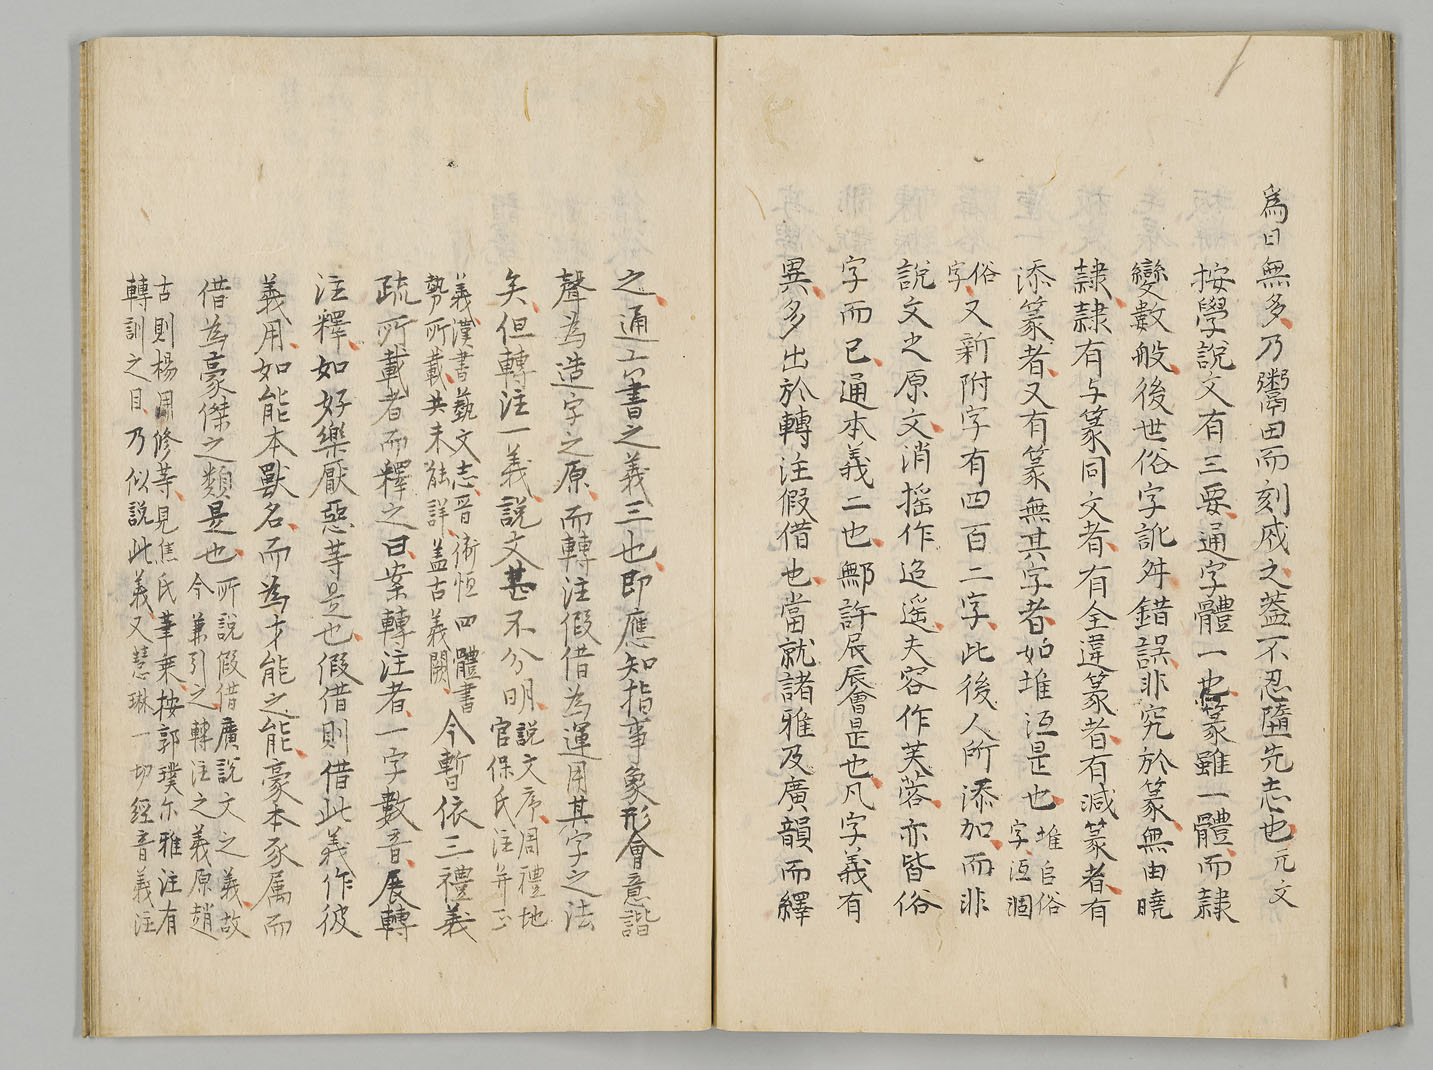 為曰無多乃鬻田而刻成之蓋不忍隳先志也元文
按學說文有三要通字體一也篆雖一體而隷
變數般後世俗字訛舛錯誤非究於篆無由曉
隷隷有与篆同文者有全違篆者有減篆者有
添篆者又有篆無其字者如堆沍是也堆𠂤俗字沍涸
俗字又新附字有四百二字此後人所添加而非
說文之原文消搖作逍遥夫容作芙蓉亦皆俗
字而已通本義二也鄦許辰㑹是也凡字義有
異多出於轉注假借也當就諸雅及廣韻而繹
之通六書之義三也即應知指事象形會意諧
聲為造字之原而轉注假借為運用其字之法
矣但轉注一義說文甚不分明說文序周禮地官保氏注并正
義漢書藝文志晉衛恒四體書勢所載共未能詳蓋古義闕今暫依三禮義
疏所載者而釋之曰案轉注者一字數音展轉
注釋如好樂厭惡等是也假借則借此義作彼
義用如能本獸名而為才能之能豪本豕属而
借為豪傑之類是也所說假借廣說文之義故今兼引之轉注之義原趙
古則楊用修等見焦氏筆乘按郭璞尓雅注有轉訓之目乃似說此義又慧琳一切經音義注